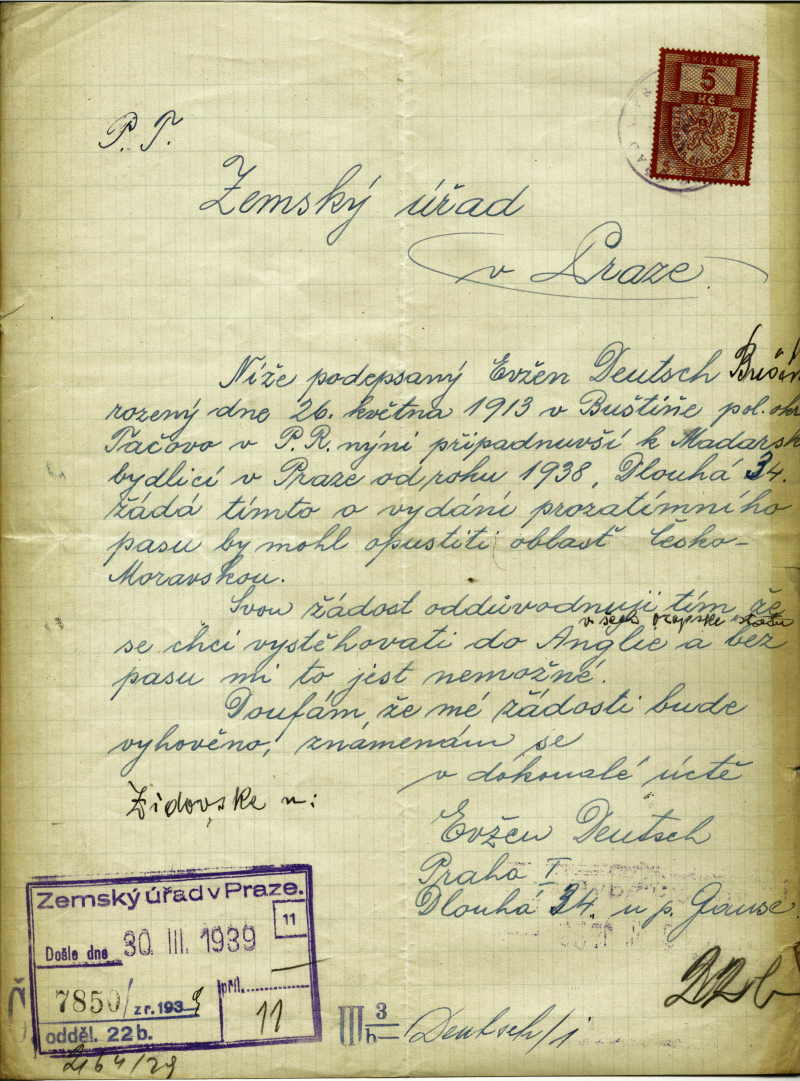 KOLEK
5
Kč
P. T.
Zemský úřad
v Praze.
Níže podepsaný Evžen Deutsch
rozený dne 26. května 1913 v Buštině pol. okr.
Tačovo v P. R. nýní připadnuvší k Madarsk
bydlicí v Praze od roku 1938, Dlouhá 34.
žádá tímto o vydání prozatímního
pasu by mohl opustiti oblasť Česko-
Moravskou.
Svou žádost oddůvodnuji tím že
v státu
se chci vystěhovati do Anglie a bez
pasu mi to jest nemožné.
Doufám, že mé žádosti bude
vyhověno, známenám se
v dokonalé úctě
Židovske n:
Evžen Deutsch
Praha I
Dlouhá 34. u p.
Zemský úřad v Praze.
11
Došle dne 30. III. 1939
7850/ z r. 1939
příl.
11
odděl. 22b.
22b
III 3/h – Deutsch/i